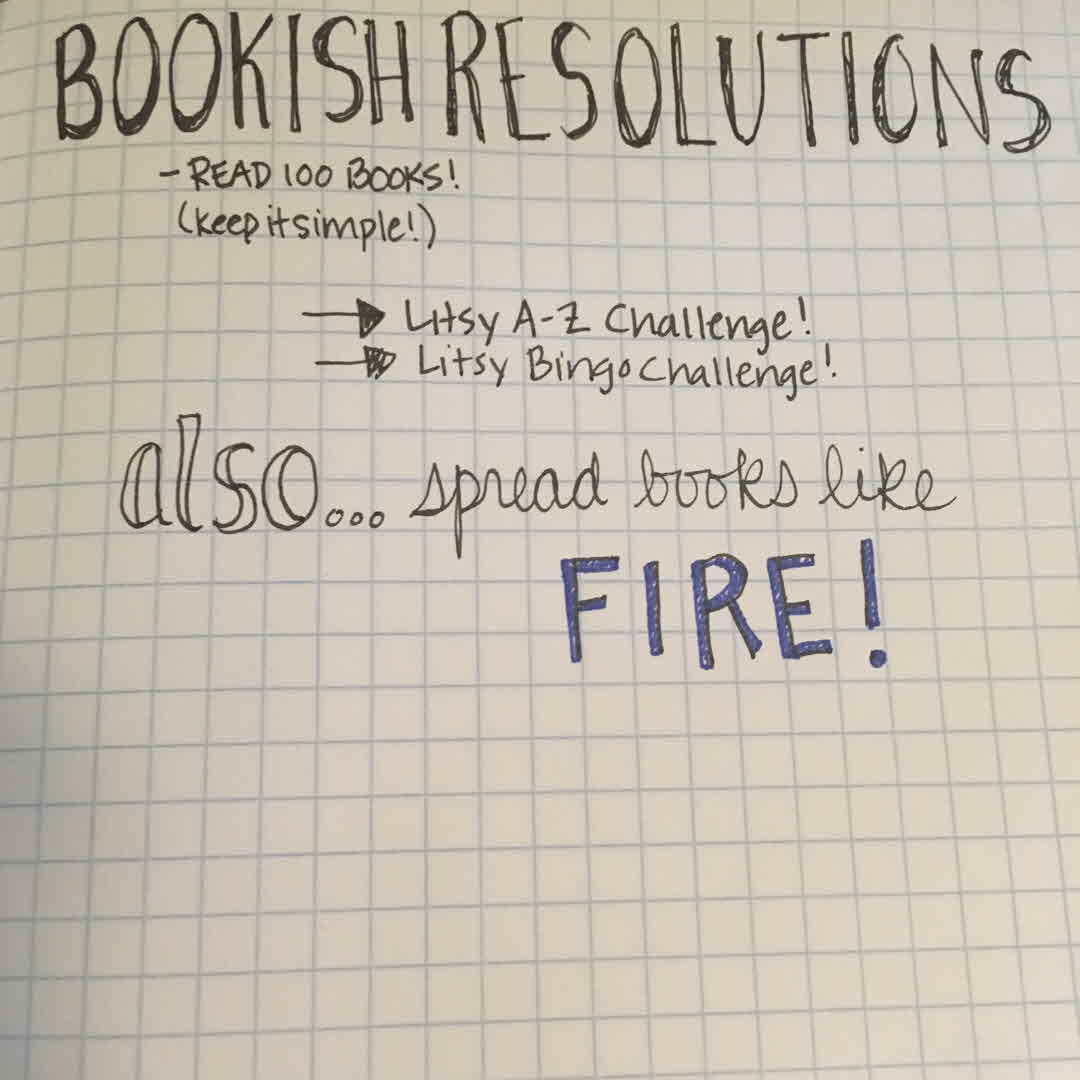 BOOKISH RESOLUTIONS
- READ 100 BOOKS!
(keep it simple!)
Litsy A-Z Challenge!
Litsy Bingo Challenge!
also... spread books like
FIRE!